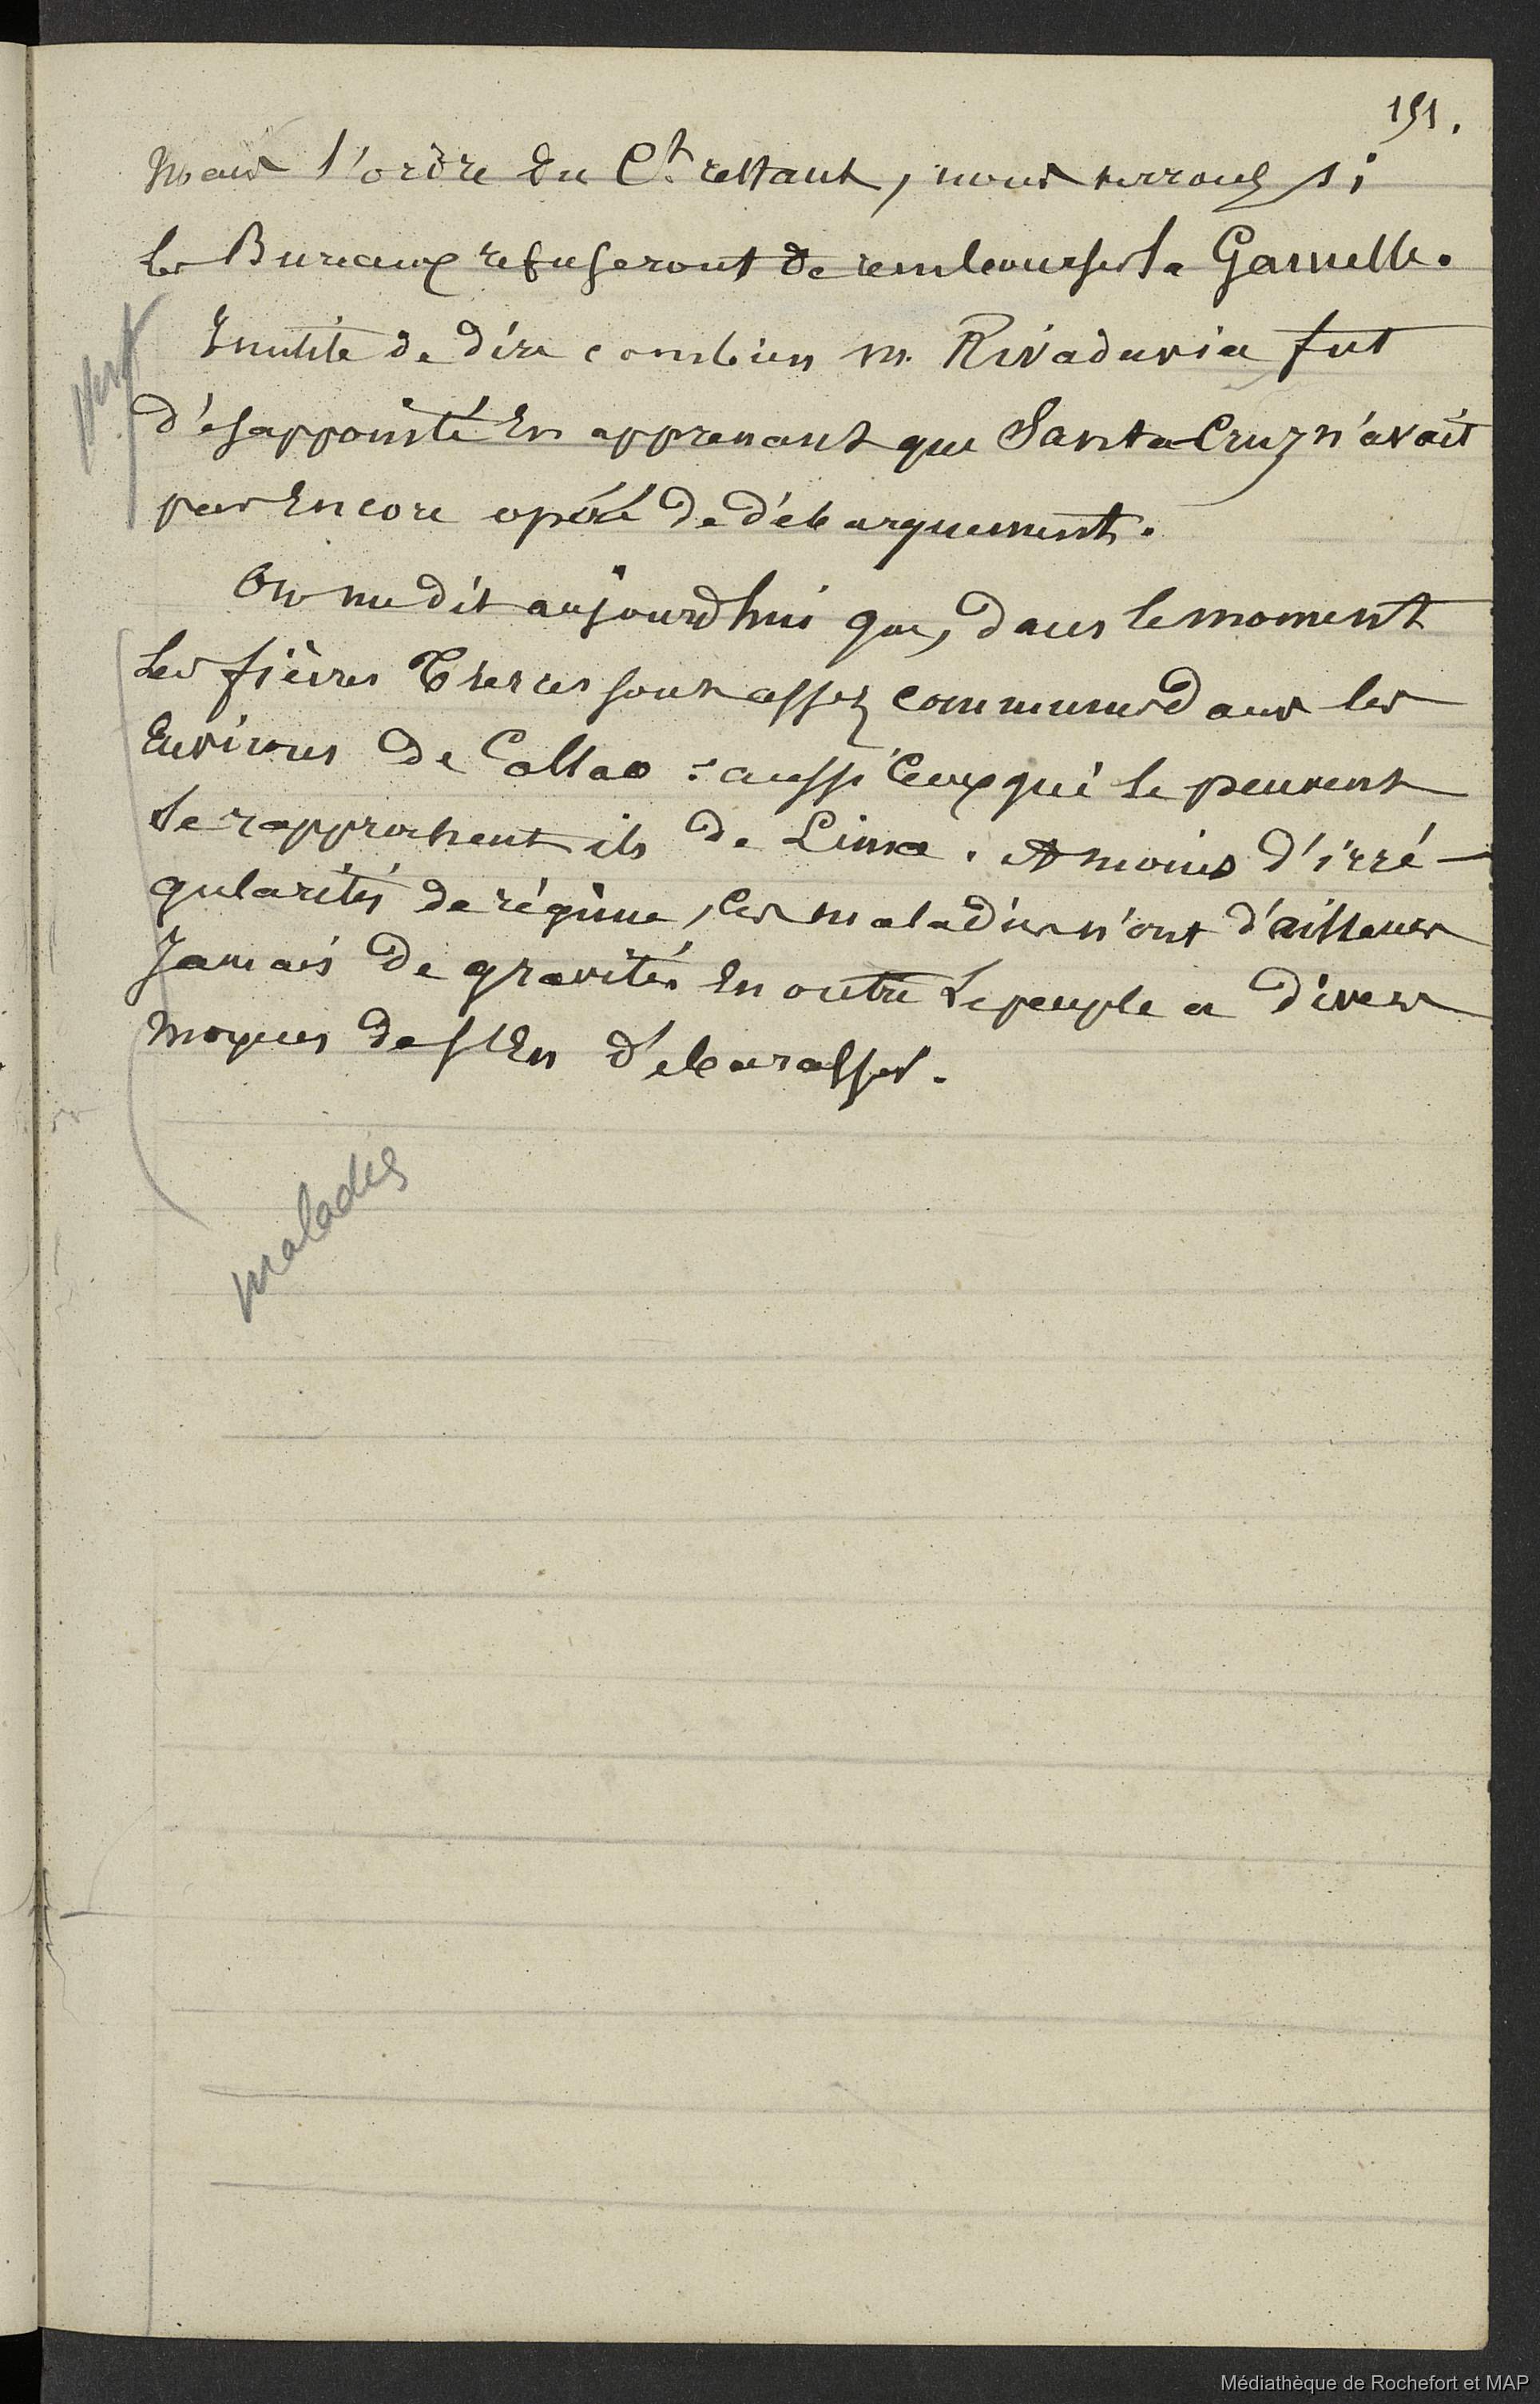 151.
Mais l'ordre du Ct restant, nous verrons si
les Bureaux refuseront de rembourser la Gamelle.
Inutile de dire combien M. Rivadavia fut
désappointé En apprenant que Santa-Cruz n'avait
pas Encore opéré de débarquement.
On me dit aujourdhui que, dans le moment
les fièvres Tierces sont assez communes dans les
Environs de Callao : aussi Ceux qui le peuvent
se rapprochent ils de Lima. A moins d'irré-
gularités de régime, Ces maladies n'ont d'ailleurs
Jamais de gravités En outre Le peuple a divers
moyens de s'En débarasser.
maladies
Médiathèque de Rochefort et MAP